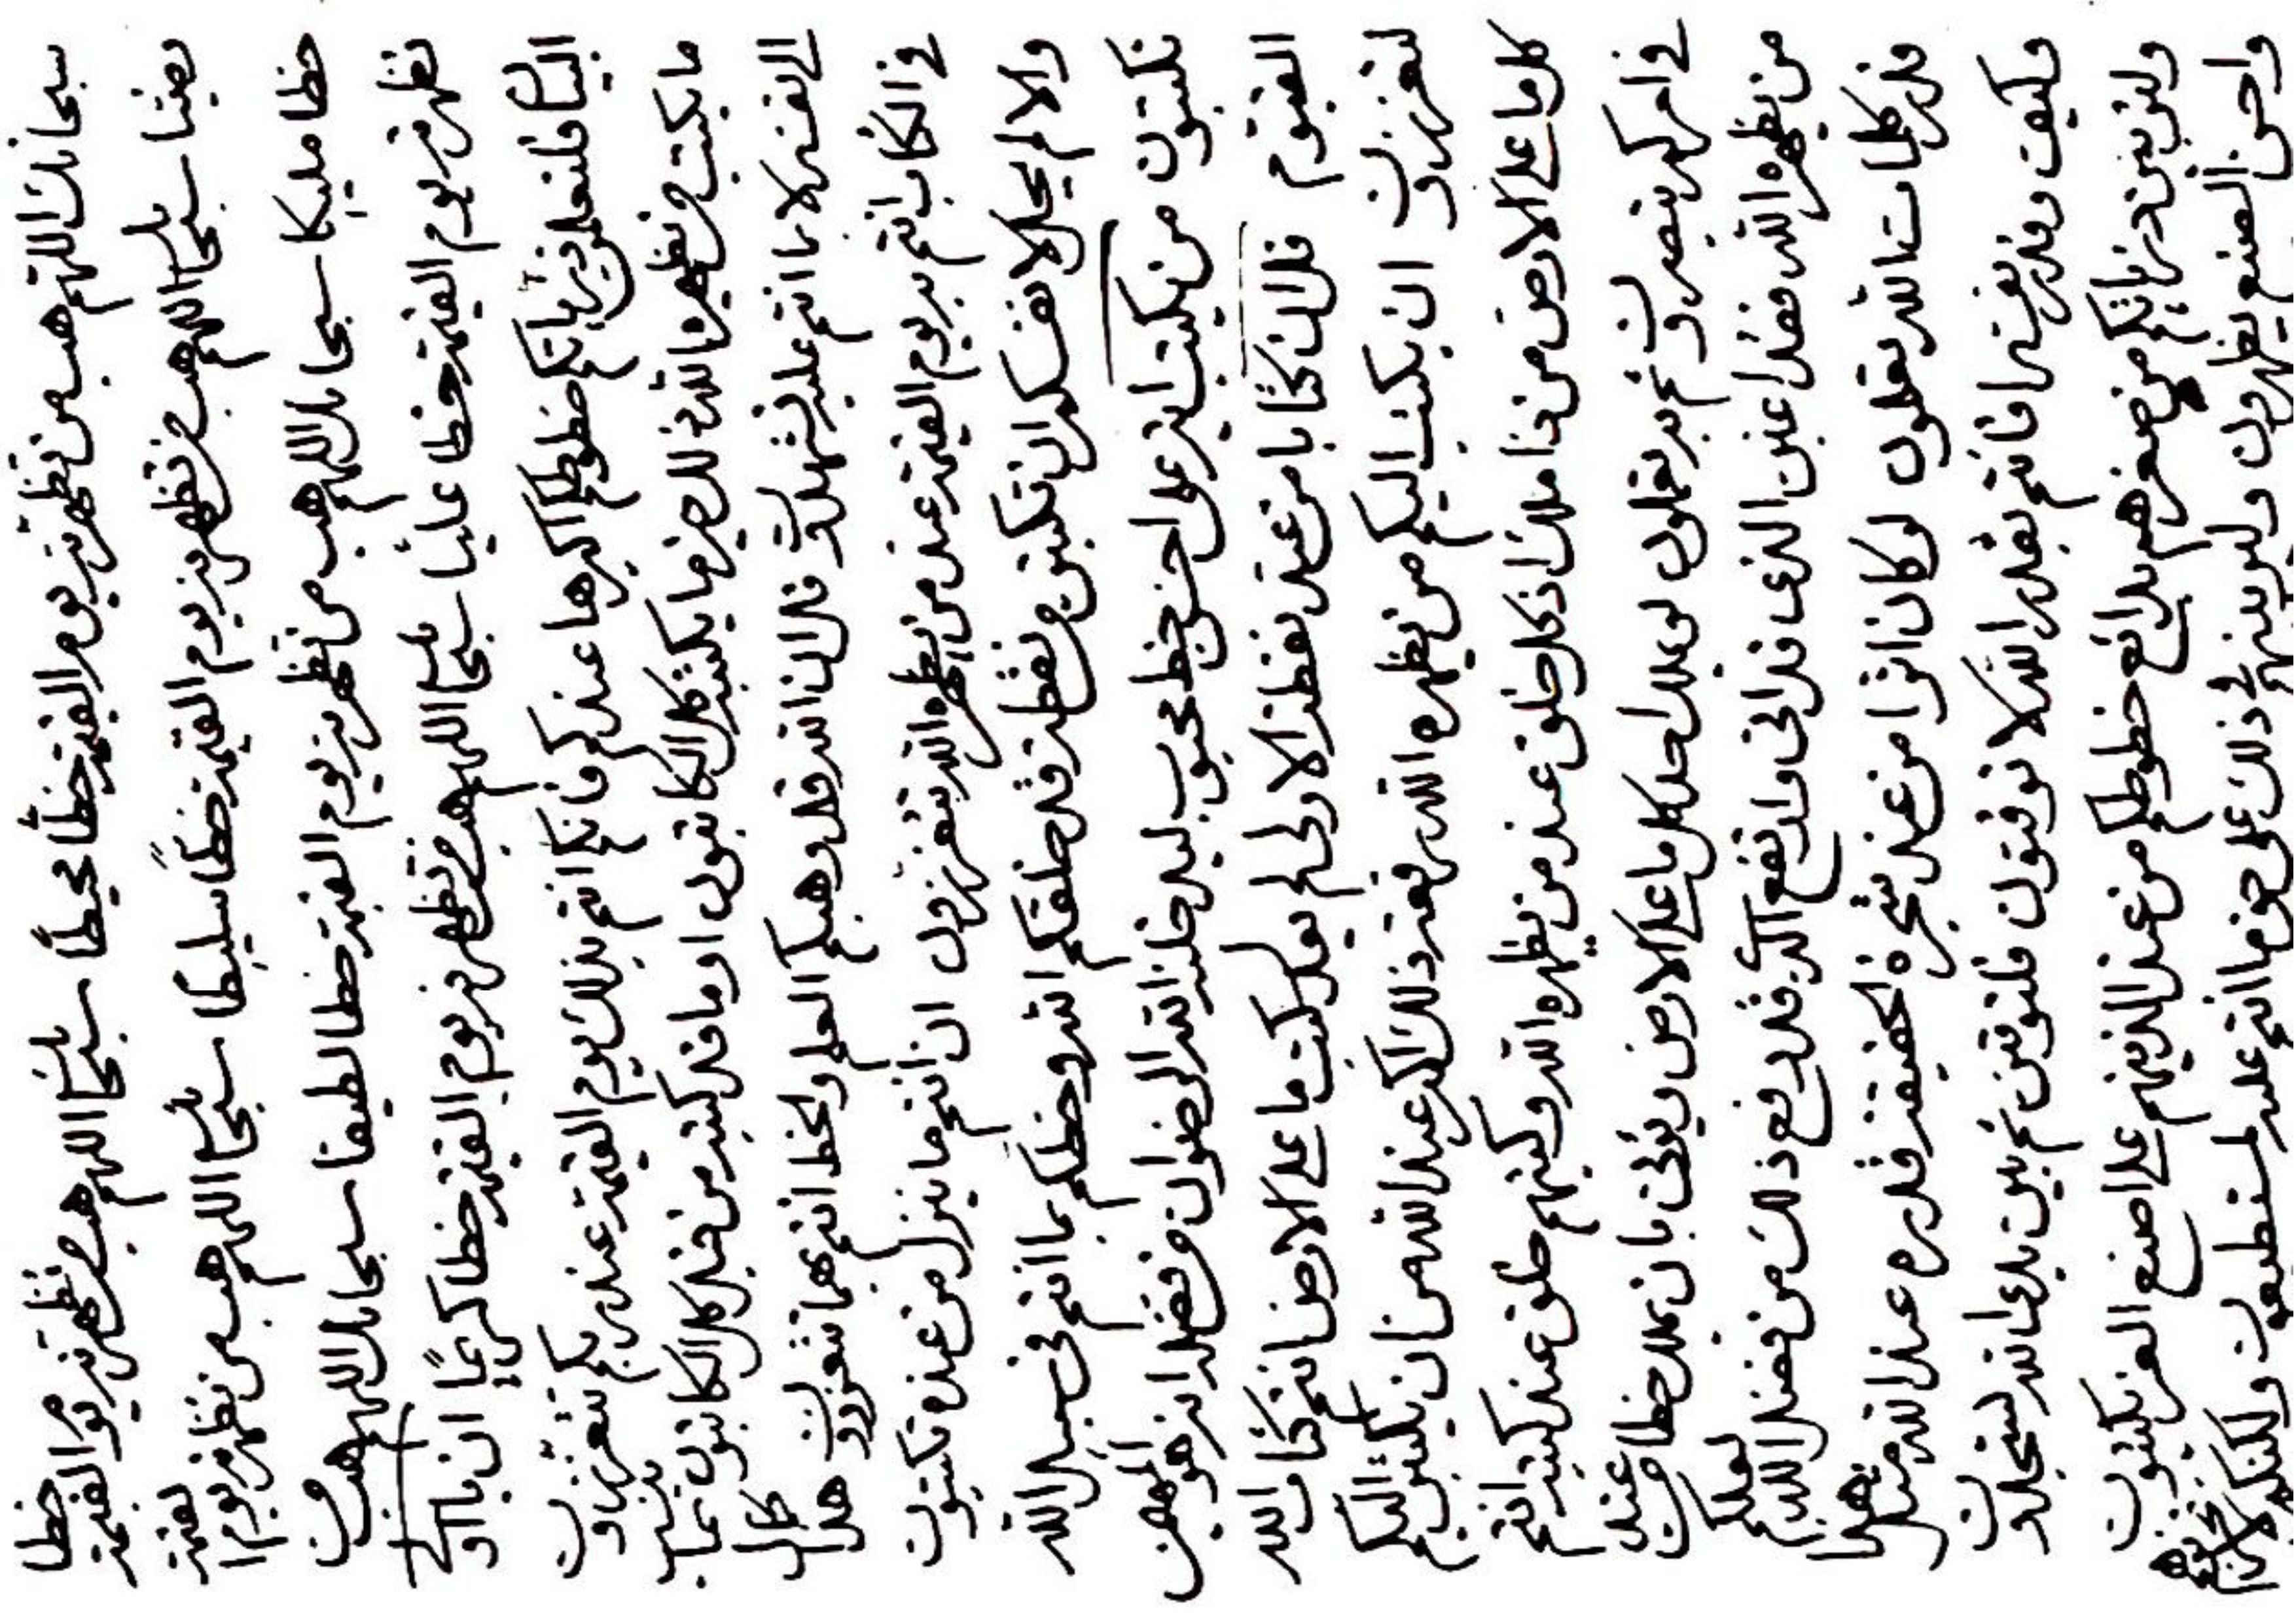 سبحانك اللهم هب من تظهرنه يوم القيمة خطا محيطا سبحانك اللهم هب من تظهرنه يوم القيمة خطا
بعينا سبحانك اللهم هب من تظهرنه يوم القيمة خطا سليطا سبحانك اللهم هب من تظهرنه يوم القيمة
خطا مليكا سبحانك اللهم هب من تظهرنه يوم القيمة خطا لطيفا سبحانك اللهم هب من
تظهرنه يوم القيمة خطا عليا سبحانك اللهم هب من تظهرنه يوم القيمة خطا كريما ان يا اولي
البيان فلتعلمن ذرياتكم خطوطكم اكبرها عندكم فانكم انتم بذلك يوم القيمة عند ربكم تتعززون
ما يكتب من يظهره الله ذلك خير مما يكتبه كل الكاتبون او ما قد كتبه من قبل كل الكاتبون
الى نفسه لا ما انتم عليه لتشهدون قل ان الله قد وهبكم العلم والخط انتم بهما تتعززون هذا كتاب
في الكتاب انتم به يوم القيمة عند من يظهره الله تتعززون ان انتم ما ينزل من عنده تكتبون
والا لم يحل لانفسكم ان تكتبن من نقطة قد خلقكم الله وخطكم بما انتم في سبيل الله
تكتبون من يكتب اثر على احسن خط محبوب ليدخلنه الله الرضوان من فضله انه هو المهيمن
القيوم قل ان كتابا من عند نقطة الاولى لم يعدل كتب ما على الارض انتم كتاب الله
لتعززون ان يكتب اليكم من يظهره الله فعز ذلك اكبر عند الله من ان يكتبن اليكم
كل ما على الارض من ذا ملك اذ كل خلق عند من يظهره الله وكتبهم خلق عند كتبه انتم
في امركم تبصرون ثم به تعملون لو يملك احد كل ما على الارض ويؤتى بان يملك خطا من عند
من يظهره الله فقد اغبن الذي قد اتى وارتفع اكبر قدر رفع ذلك من فضل الله لعلكم
قدر كلمات الله تعلمون لو كان اثرا من عند شجرة الحقيقة قدره عند الله مثل هذا
فكيف وقدر نفسه افانتم بقدر الله لا توقنون فلتوقنن ثم بين يدي الله لتسجدون
ولتربين ذرياتكم من صغرهم بدايع خطوطكم من عند الذينهم على اصنع الفن يكتبون
واحسن الصنع يظهرون وليربينهم في ذلك على حق ما انتم عليه لمستطيعون ولكنكم لا